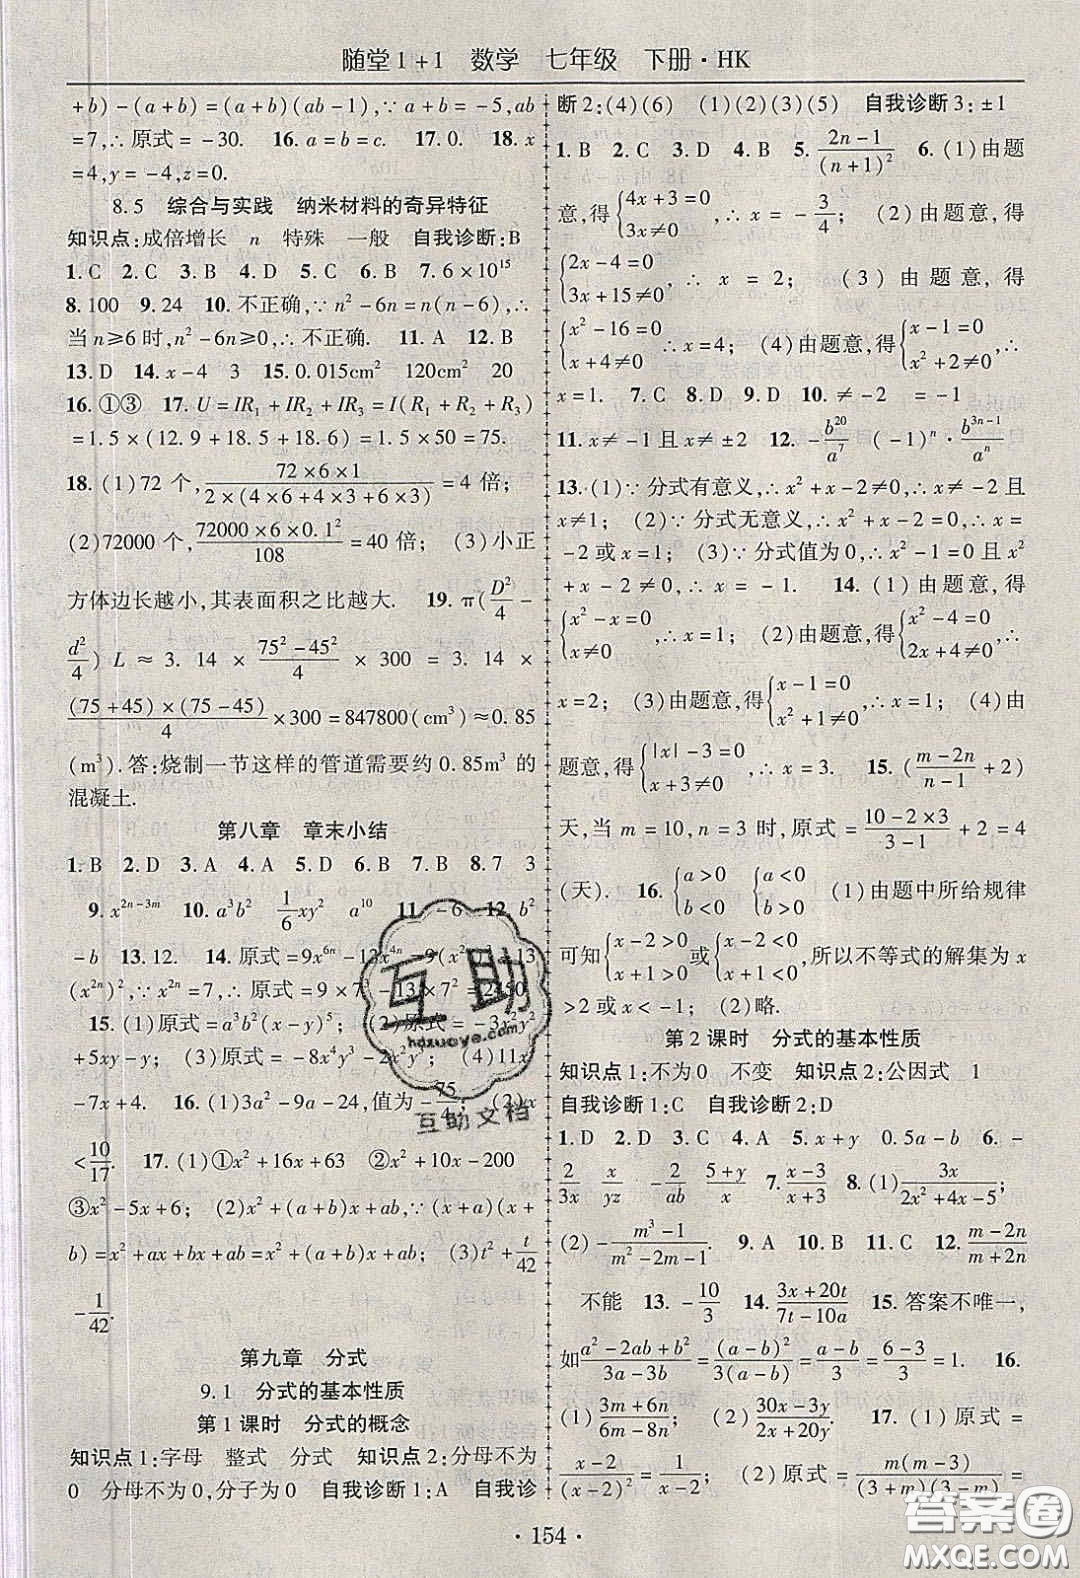 随堂1+1 数学 七年级 下册·HK
+b)-(a+b)=(a+b)(ab-1),∵a+b=-5,ab
=7,∴原式=-30. 16. a=b=c. 17. 0. 18. x
=4,y=-4,z=0.
8.5 综合与实践 纳米材料的奇异特征
知识点:成倍增长 n 特殊 一般 自我诊断:B
1. C 2. C 3. B 4. D 5. C 6. B 7. 6×10¹⁵
8. 100 9. 24 10. 不正确,∵n²-6n=n(n-6),∴
当n≥6时,n²-6n≥0,∴不正确. 11. A 12. B
13. D 14. x-4 3 15. 0.015cm² 120cm² 20
16. ①③ 17. U=IR₁+IR₂+IR₃=I(R₁+R₂+R₃)
=1.5×(12.9+18.5+18.6)=1.5×50=75.
18. (1)72个,72×6×1/2×(4×6+4×3+6×3)=4倍;
(2)72000个,72000×6×0.1²/108=40倍; (3)小正
方体边长越小,其表面积之比越大. 19. π(D²/4-
d²/4)L≈3.14×75²-45²/4×300=3.14×
(75+45)×(75-45)/4×300=847800(cm³)≈0.85
(m³).答:烧制一节这样的管道需要约0.85m³的
混凝土.
第八章 章末小结
1. B 2. D 3. A 4. A 5. D 6. B 7. B 8. 7 3
9. x²ⁿ⁻³ᵐ 10. a³b² 1/6xy² a¹⁰ 11. -6 12. b²
-b 13. 12. 14. 原式=9x⁶ⁿ-13x⁴ⁿ=9(x²ⁿ)³-13
(x²ⁿ)²,∵x²ⁿ=7,∴原式=9×7³-13×7²=2450.
15. (1)原式=a³b²(x-y)⁵; (2)原式=-3x²y²
+5xy-y; (3)原式=-8x⁴y³-2x²y²; (4)11x
-7x+4. 16. (1)3a²-9a-24,值为-75/4; (2)x
<10/17. 17. (1)①x²+16x+63 ②x²+10x-200
③x²-5x+6; (2)x²+(a+b)x+ab,∵(x+a)(x+
b)=x²+ax+bx+ab=x²+(a+b)x+ab; (3)t²+t/42
-1/42.
第九章 分式
9.1 分式的基本性质
第1课时 分式的概念
知识点1:字母 整式 分式 知识点2:分母不为
0 分母不为0,分子为0 自我诊断1:A 自我诊
断2:(4)(6) (1)(2)(3)(5) 自我诊断3:±1
1. B 2. C 3. B 4. B 5. 2n-1/(n+1)² 6. (1)由题
意,得{4x+3=0 3x≠0,∴x=-3/4; (2)由题意,得
{2x-4=0 3x+15≠0,∴x=2; (3)由题意,得
{x²-16=0 x+4≠0,∴x=4; (4)由题意,得{x-1=0 x²+2≠0,∴
x=1. 7. C 8. D 9. D 10. ≠-2 =-1
11. x≠-1且x≠±2 12. -b²⁰/a⁷ (-1)ⁿ·b³ⁿ⁻¹/aⁿ
13. (1)∵分式有意义,∴x²+x-2≠0,∴x≠-2且
x≠1; (2)∵分式无意义,∴x²+x-2=0,∴x=
-2或x=1; (3)∵分式值为0,∴x²-1=0且x²
+x-2≠0,∴x=-1. 14. (1)由题意,得
{x²-x=0 x≠0,∴x=1; (2)由题意,得{x²-4=0 2x+4≠0,∴
x=2; (3)由题意,得{x-1=0 x²+1≠0,∴x=1; (4)由
题意,得{|x|-3=0 x+3≠0,∴x=3. 15. (m-2n/n-1+2)
天,当m=10,n=3时,原式=10-2×3/3-1+2=4
(天). 16. {a>0 b<0 {a<0 b>0 (1)由题中所给规律
可知{x-2>0 x+1>0或{x-2<0 x+1<0,所以不等式的解集为x
>2或x<-1; (2)略.
第2课时 分式的基本性质
知识点1:不为0 不变 知识点2:公因式 1
自我诊断1:C 自我诊断2:D
1. D 2. D 3. C 4. A 5. x+y 0.5a-b 6. -
2/3x x/yz -2/ab 5+y/xy 7. x-3/x+3 8. (1)3x/2x²+4x-5;
(2)-m³-1/m²-2m-1. 9. A 10. B 11. C 12. m-2n/m+2n
不能 13. -10/3 14. 3x+20t/7t-10a 15. 答案不唯一,
如a²-2ab+b²/3a-3b=(a-b)²/3(a-b)=a-b/3=6-3/3=1. 16.
(1)3m+6n/6m-8n; (2)30x-3y/10x+2y. 17. (1)原式=
x-2/(x-2)²=1/x-2; (2)原式=m(m-3)/(3+m)(3-m)=
·154·
互助
hdzuoye.com
互助文档
答案圈
MXQE.COM